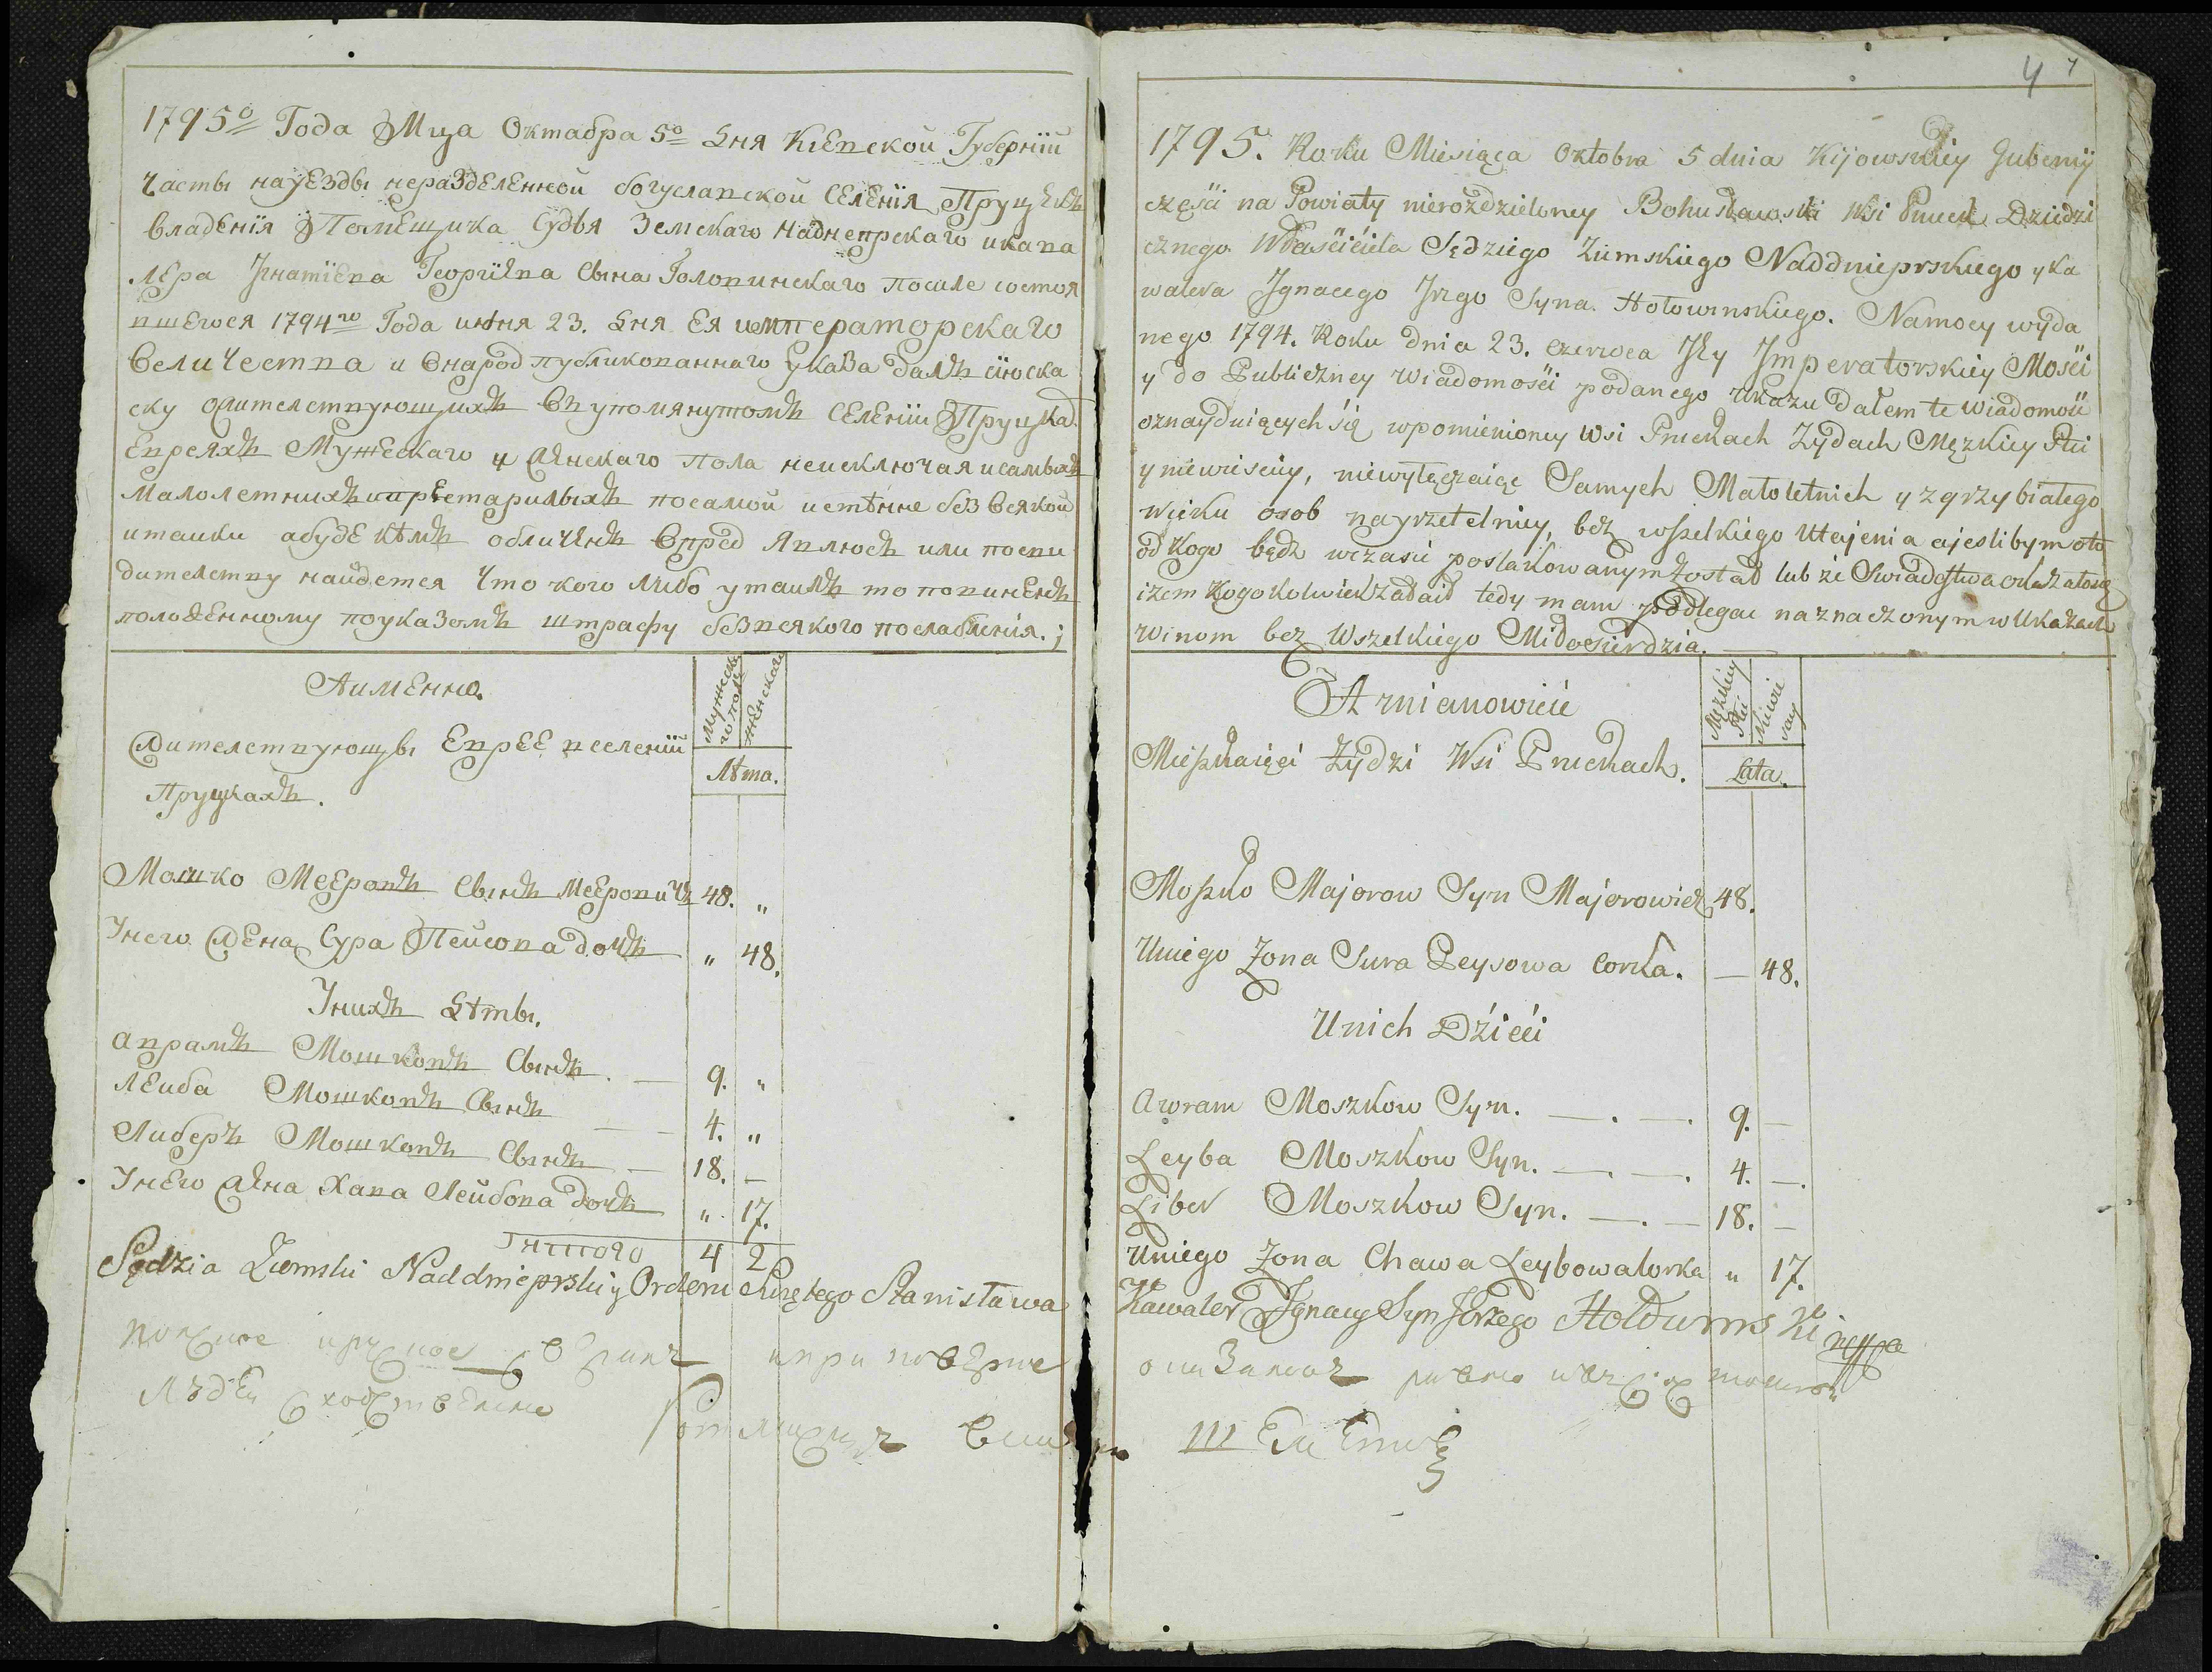 1795º Года Мца Октабра 5º Дня Киевской Губернїи
Части науезды неразделенной богуславской Селенїя Пруцекъ
владенїя Помещика Судья Земскаго Наднепрскаго икава
лера Игнатїева Георгїева Сына Головинскаго посиле состоя
вшегося 1794го Года июня 23. Дня Ея императорскаго
Величества и внарод публикованнаго указа далъ сїю ска
ску ожителствующихъ въ упомянутомъ Селенїи Пруцках
Евреяхъ Мужескаго и Женскаго пола неисключая исамыхъ
малолетнихъ ипрестарилыхъ посамой истинне без всякой
итаики абуде кемъ обличенъ впред явлюсъ или посви
дителству найдется что кого либо утаилъ то повиненъ
положенному поуказомъ штрафу безвсякого послабленїя.
Аименно.
Мужеска го пола
женскаго
Жителствующы Еврее вселенїи
Пруцкахъ.
Лѣта.
Мошко Мееровъ Сынъ Мееровичъ 48. „
Унего Жена Сура Пейсова дочъ „ 48.
Унихъ Дѣты.
Аврамъ Мошковъ Сынъ. — 9. „
Леиба Мошковъ Сынъ — 4. „
Либеръ Мошковъ Сынъ — 18. —
Унего Жена Хава Лейбова дочъ „ 17.
Інтого 4 2
Sędzia Ziemski Naddnieprski y Orderu Swiętego Stanisława
4
1795. Roku Miesiąca Oktobra 5 dnia Kijowskiey Gubernij
części na Powiaty nierozdzieloney Bohusławski Wsi Pruck Dziedzi
cznego Właściciela Sędziego Ziemskiego Naddnieprskiego y Ka
walera Jgnacego Jrzego Syna Hołowinskiego. Namocy wyda
nego 1794. Roku dnia 23. czerwca Jey Jmperatorskiey Mości
y do Publiczney Wiadomości podanego Ukazu dałem te wiadomość
oznayduiących się wpomienioney Wsi Pruckach Zydach Męzkiey Płci
y niewisciey, niewyłączaiąc Samych Małoletnich y zgrzybiałego
Wieku osob nayrzetelniey, bez wszelkiego Utajenia ajeslibym oto
od Kogo bądz wczasie poslakowanym został lub ze Swiadectwa okazałosię
izem Kogokolwiek zataił tedy mam podlegac naznaczonym w Ukazach
winom bez Wszelkiego Miłosierdzia. —
A mianowicie
Męzkiey Płci
Niewie sciey
Mieszkaięci Zydzi Wsi Pruckach.
Lata.
Moszko Majorow Syn Majorowicz 48.
Uniego Zona Sura Peysowa Corka. — 48.
Unich Dzieci
Awram Moszkow Syn. —. —. 9. —
Leyba Moszkow Syn. —. —. 4. —.
Liber Moszkow Syn. —. — 18. —
Uniego Zona Chawa Leybowa Corka „ 17.
Kawaler Jgnacy Syn Jrzego Hołowinski